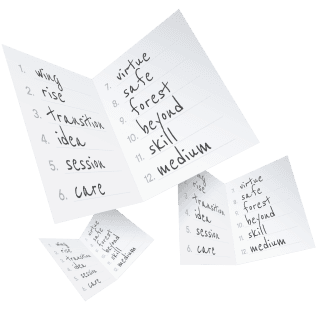 1. wing
2. rise
3. transition
4. idea
5. session
6. care
7. virtue
8. safe
9. forest
10. beyond
11. skill
12. medium
rise
3. transition
4. idea
5. session
6. care
7. virtue
8. safe
9. forest
10. beyond
11. skill
12. medium
1. wing
2. rise
3. transition
4. idea
5. session
6. care
7. virtue
8. safe
9. forest
10. beyond
11. skill
12. medium